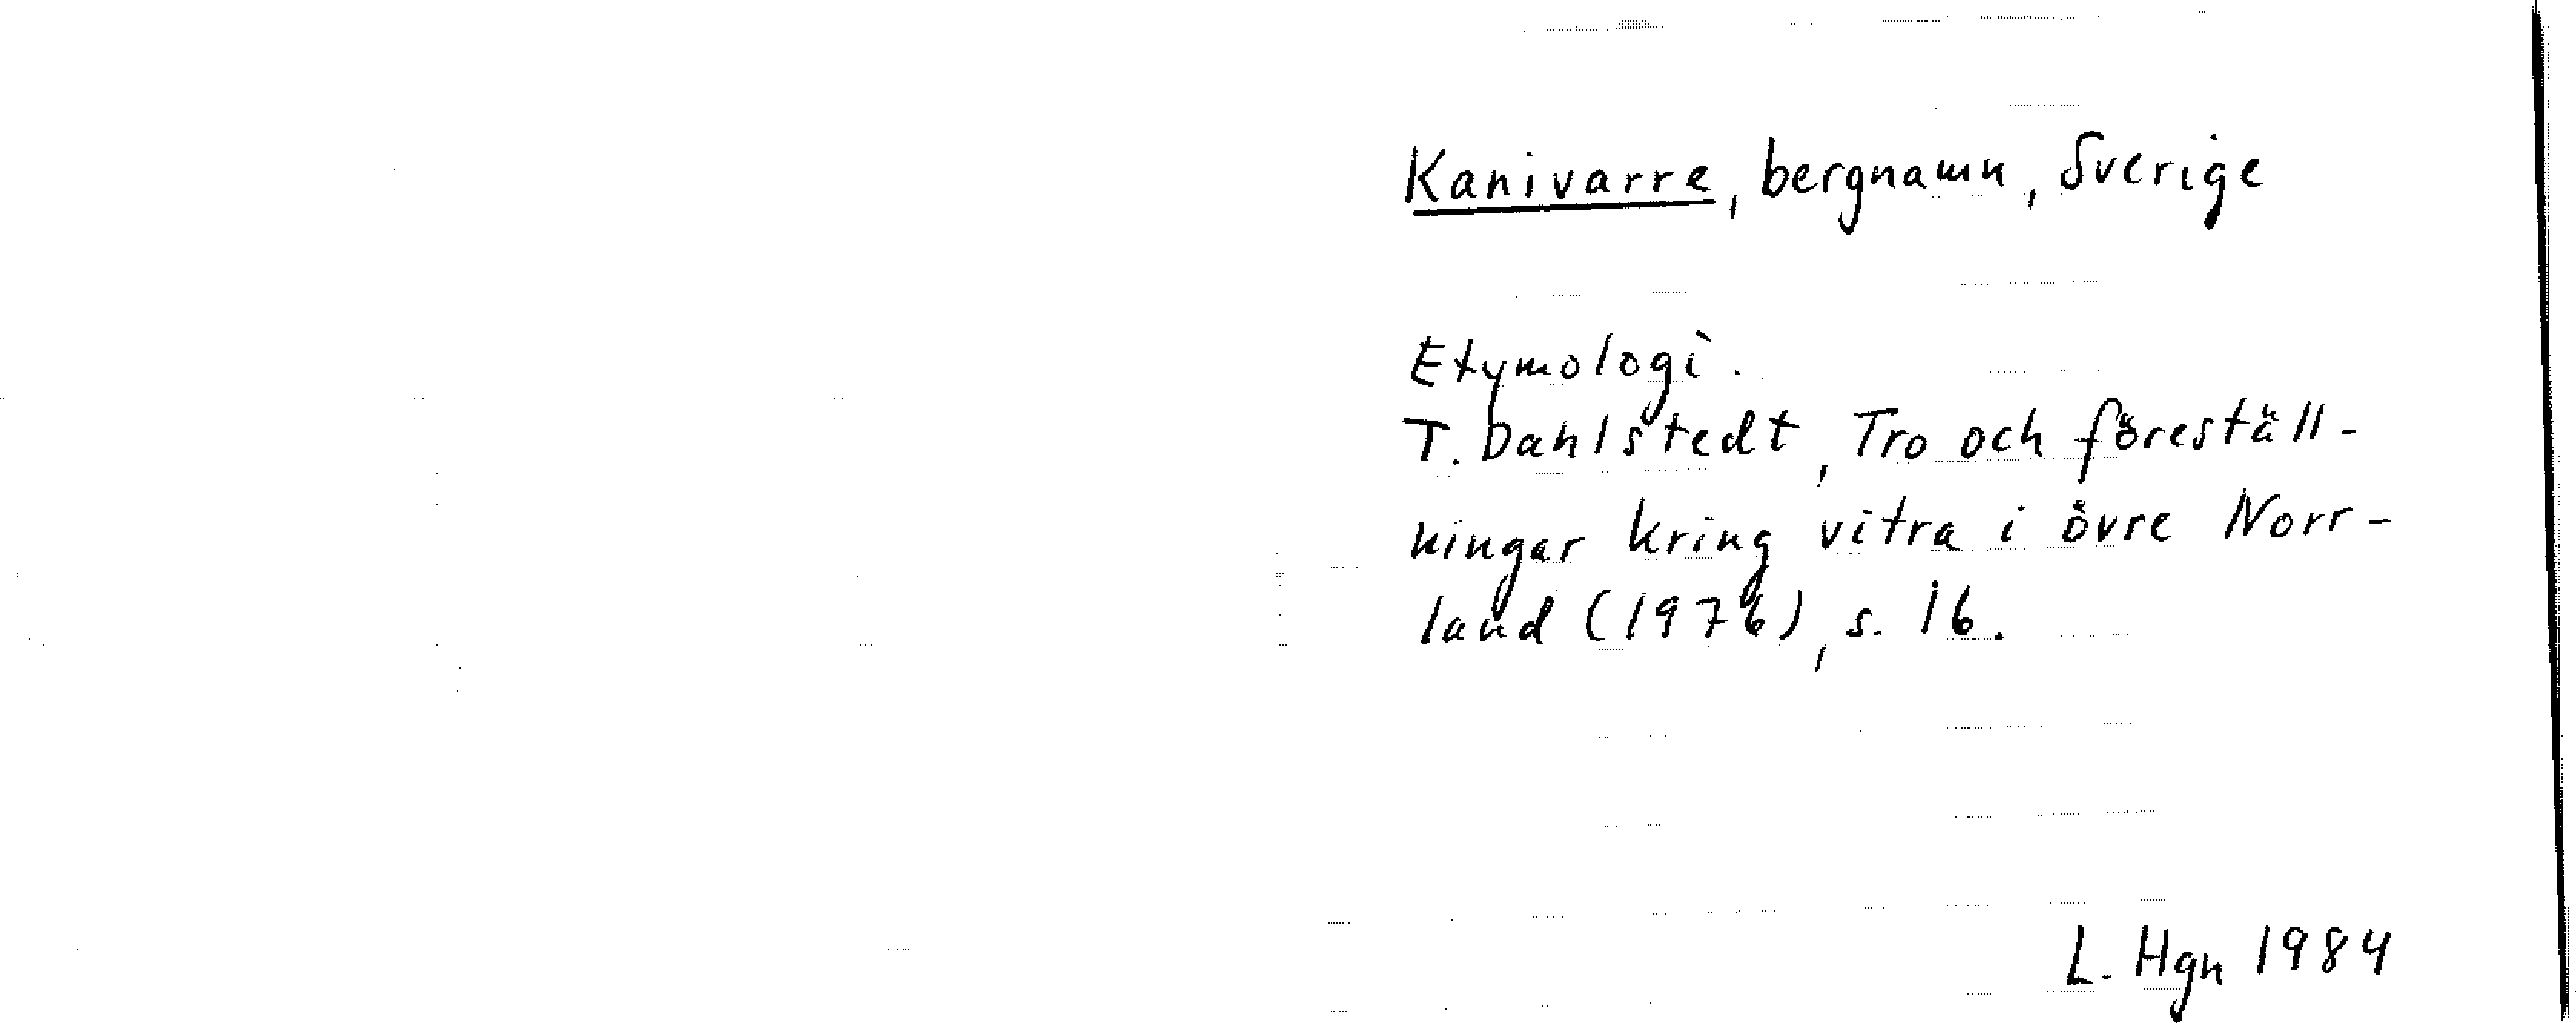 Kanivarre, bergnamn, Sverige
Etymologi.
T. Dahlstedt, Tro och föreställ-
ningar kring vitra i övre Norr-
land (1976), s. 16.
L. Hgn 1984